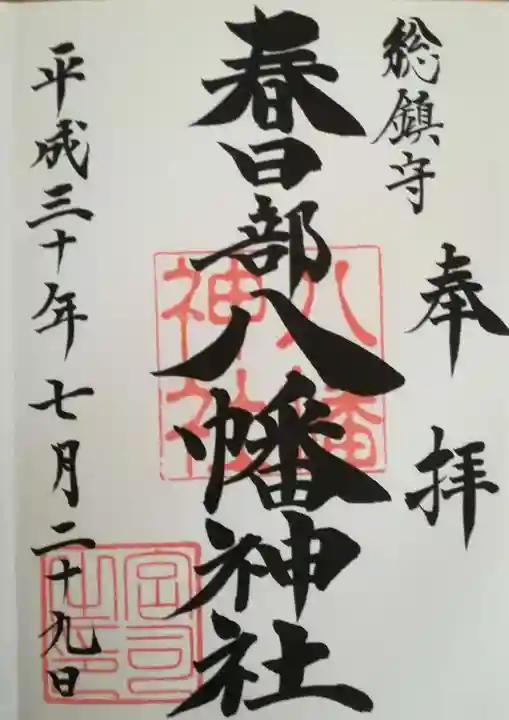 奉拝
総鎮守
春日部八幡神社
八幡神社
平成三十年七月二十九日
宮司之印